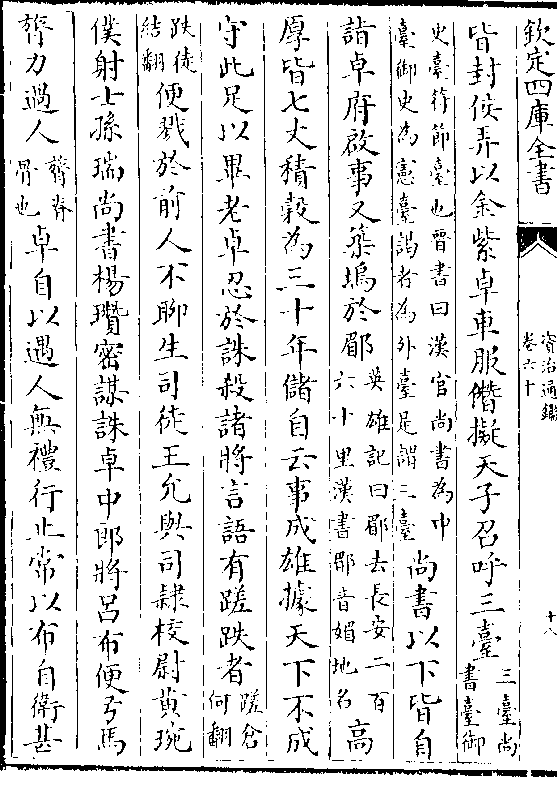 欽定四庫全書
資治通鑑
卷六十
十八
皆封侯弄以金紫卓車服僭擬天子召呼三臺三臺尚書臺御
史臺符節臺也晉書曰漢官尚書為中臺御史為憲臺謁者為外臺是謂三臺尚書以下皆自
詣卓府啟事又築塢於郿英雄記曰郿去長安二百六十里漢書郡音媚地名高
厚皆七丈積榖為三十年儲自云事成雄據天下不成
守此足以畢老卓忍於誅殺諸將言語有蹉跌者蹉倉何翻
跌徒結翻便戮於前人不聊生司徒王允與司隷校尉黄琬
僕射士孫瑞尚書楊瓚密謀誅卓中郎將呂布便弓馬
膂力過人膂脊骨也卓自以遇人無禮行止常以布自衛甚